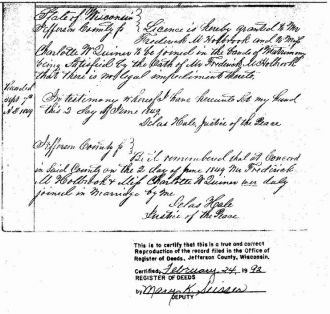 State of Wisconsin }
Jefferson County ss } Licence is hereby granted to Mr
Frederick M Holbrook and to Miss
Charlotte W Quiner to be joined in the bands of Matrimony
being satisfied by the Oath of Mr Frederick M Holbrook
that there is no legal impediment thereto.
Recorded
Sept 7th
A.D. 1849
In testimony whereof I have hereunto set my hand
this 2 day of June 1849
Silas Hale, Justice of the Peace
Jefferson County ss }
Be it remembered that at Concord
in Said County on the 2 day of June 1849 Mr Frederick
M Holbrook & Miss Charlotte W Quiner were duly
joined in Marriage by me
Silas Hale
Justice of the Peace
This is to certify that this is a true and correct
Reproduction of the record filed in the Office of
Register of Deeds, Jefferson County, Wisconsin.
Certified, February 24, 1992
REGISTER OF DEEDS
by Mary K.
DEPUTY